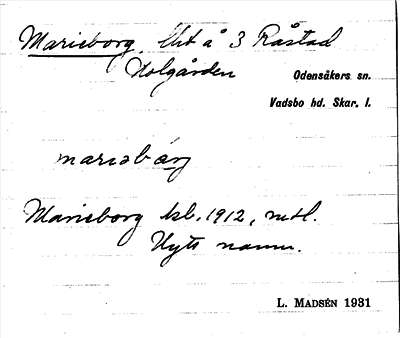 Marieborg, Uht å 3 Råstad
Holgården
Odensåkers sn.
Vadsbo hd. Skar. l.
mariabårj
Marieborg ksb. 1912,
Nytt namn.
L. MADSÉN 1931